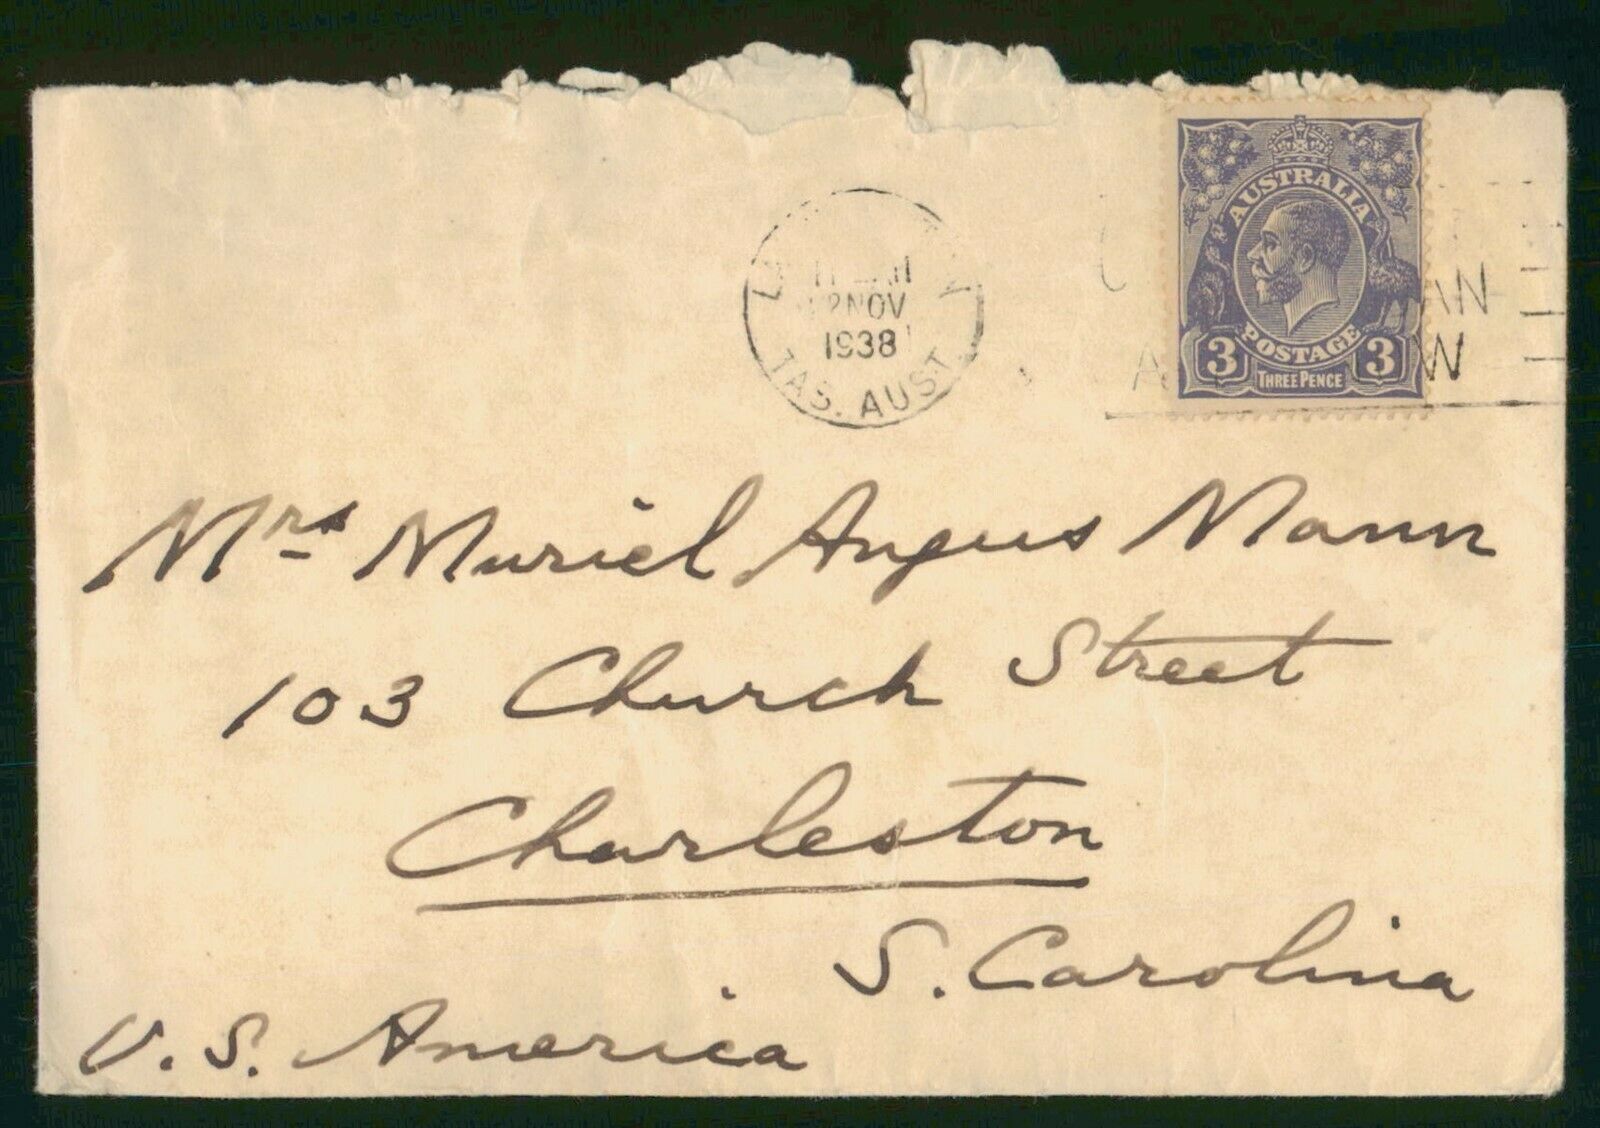 AUSTRALIA
POSTAGE
3 3
THREE PENCE
2 NOV
1938
TAS. AUST.
AN
W
Mrs Muriel Angus Mann
103 Church Street
Charleston
S. Carolina
U.S. America